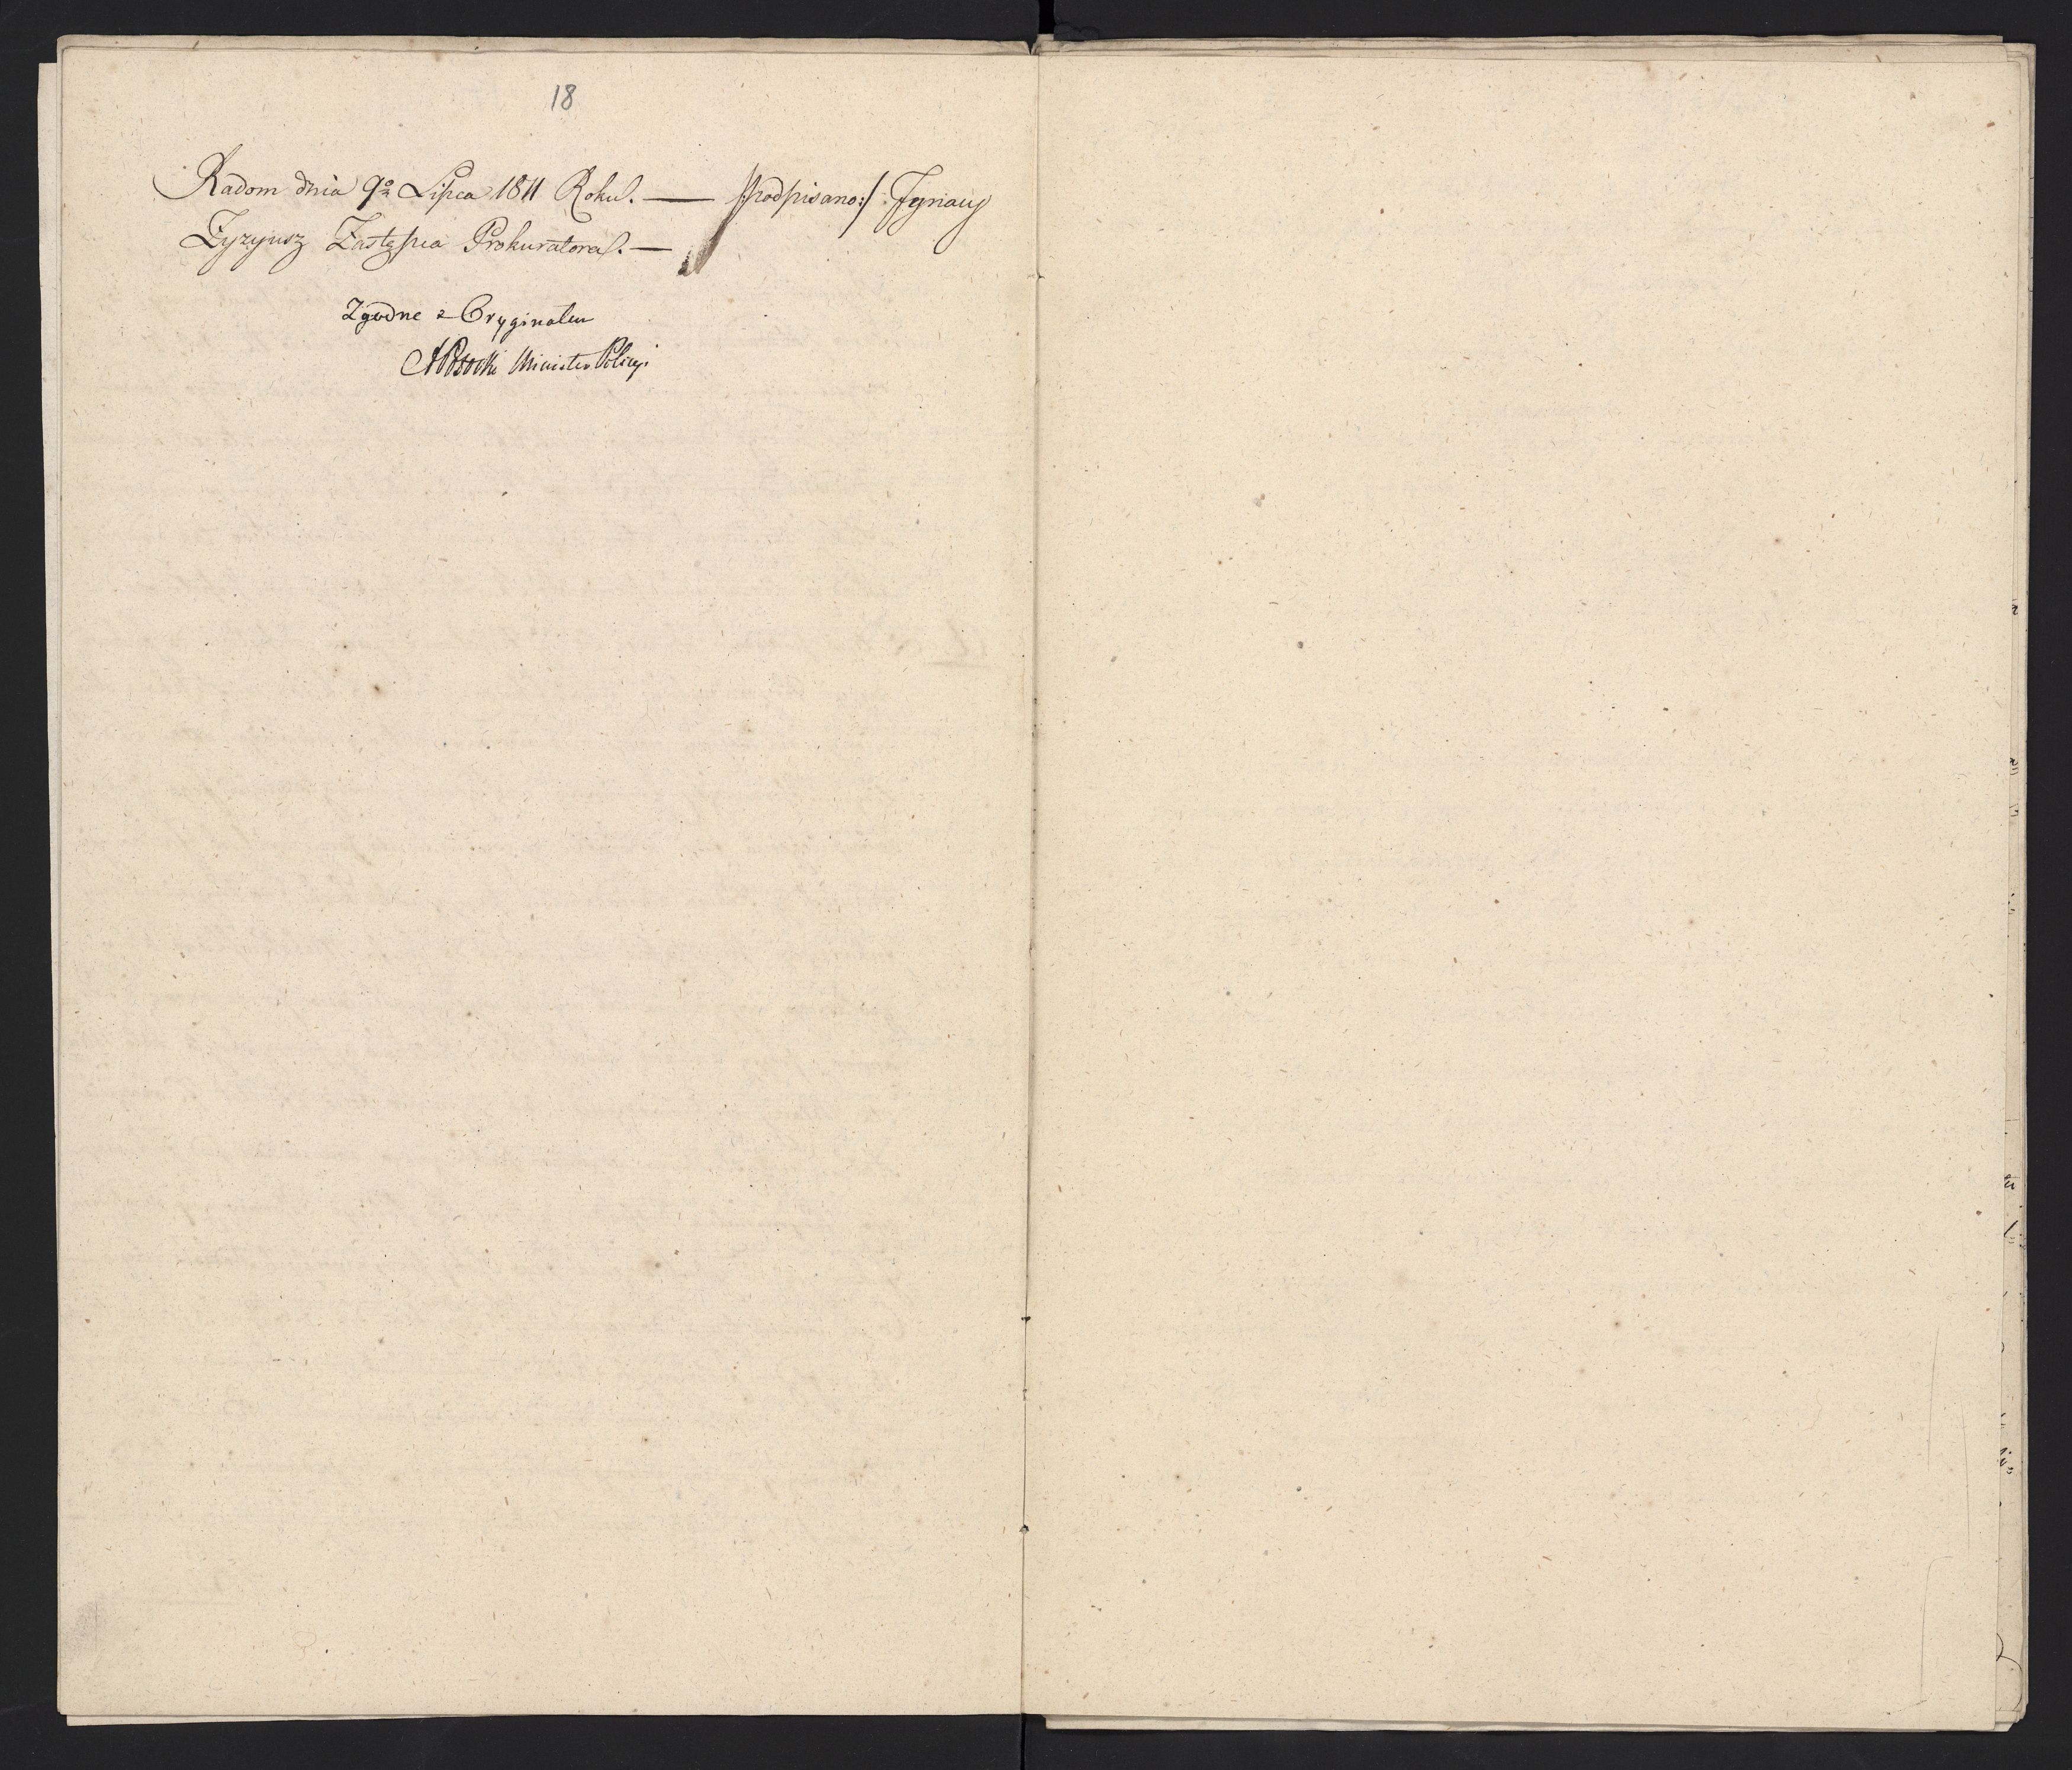 18
Radom dnia 9º Lipca 1811 Roku. — /:podpisano:/ Ignacy
Zyzyusz Zastępca Prokuratora. —
Zgodne z Oryginałem
APotocki Minister Policyi